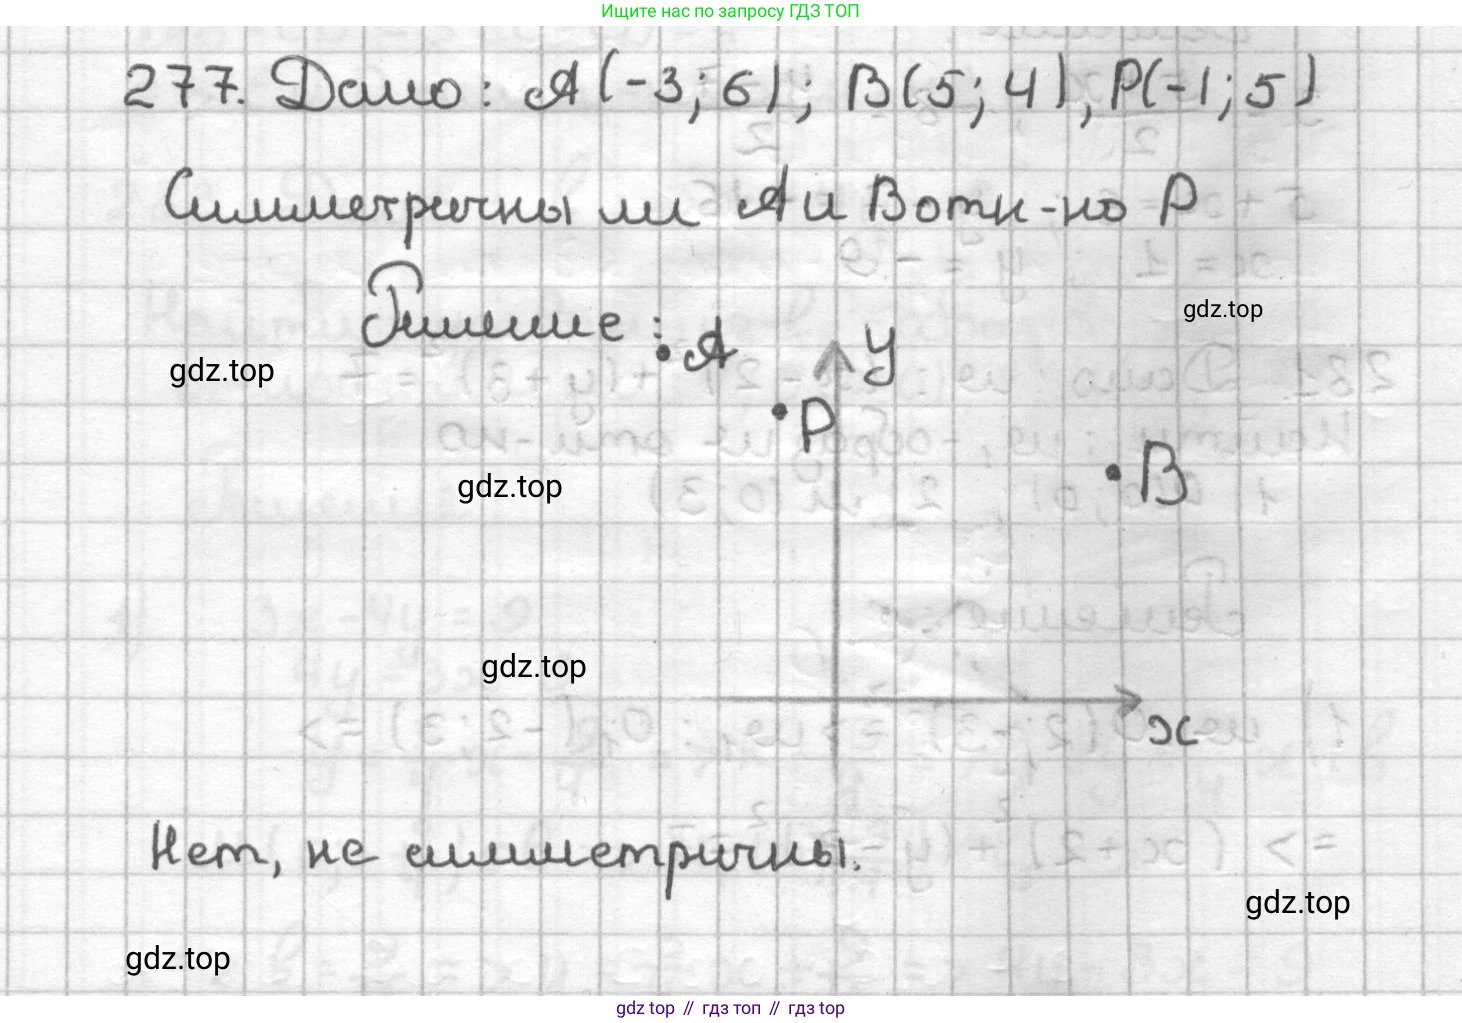 Ищите нас по запросу ГДЗ ТОП
277. Дано: A(-3; 6); B(5; 4), P(-1; 5)
Симметричны ли A и B отн-но P
Решение:
A
y
gdz.top
gdz.top
P
B
gdz.top
gdz.top
x
Нет, не симметричны.
gdz.top
gdz.top
gdz top // гдз топ // gdz top